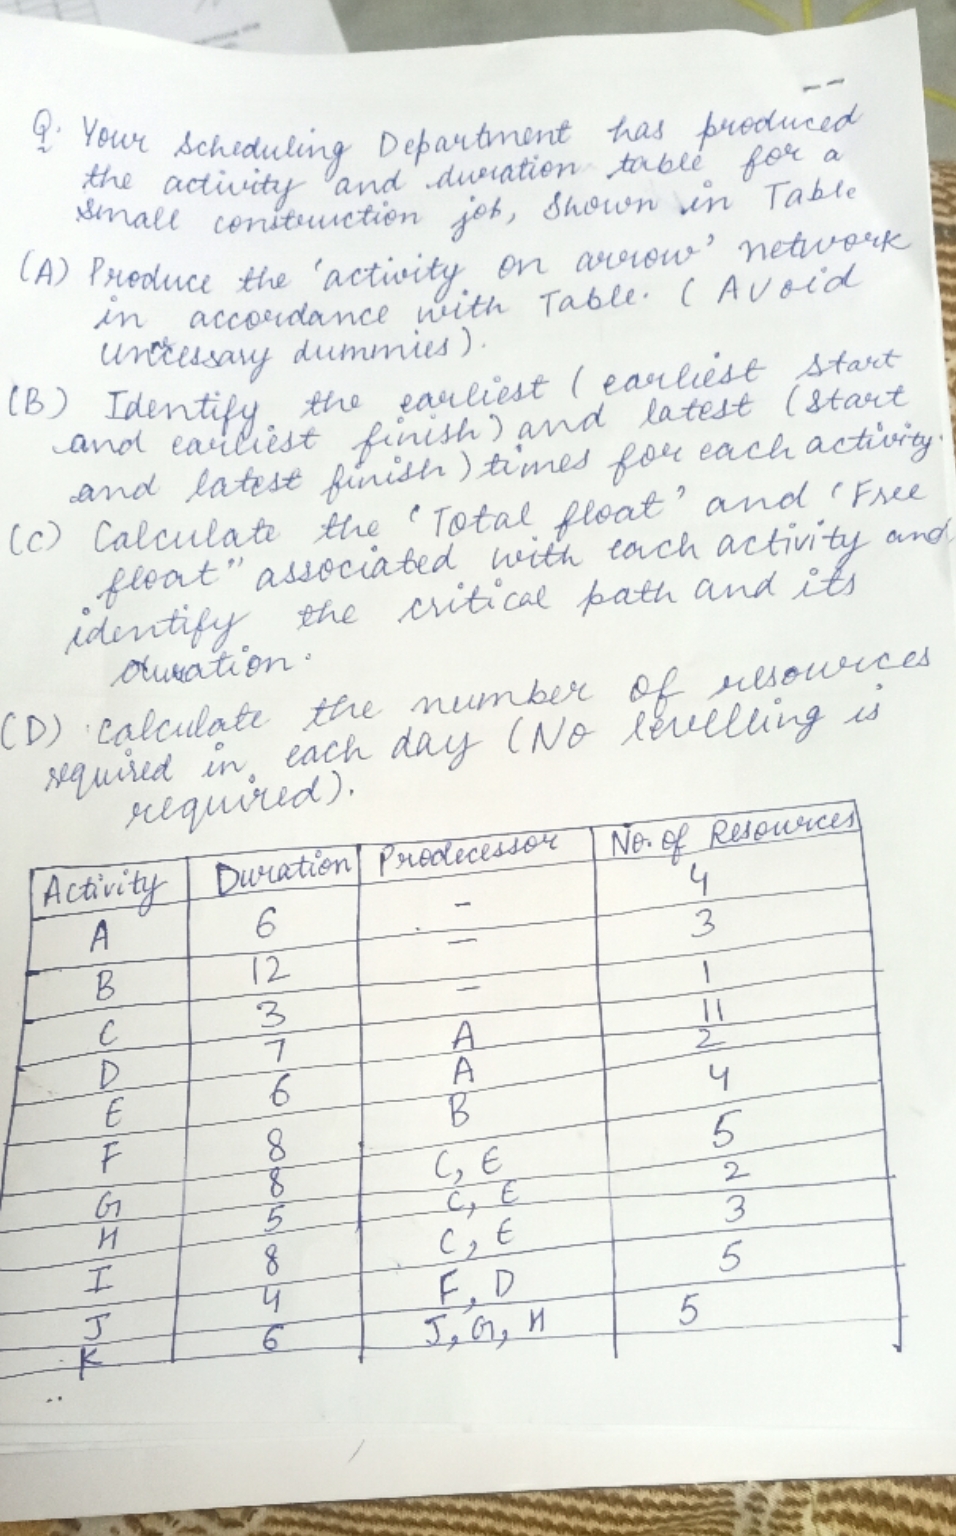 Q. Your Scheduling Department has produced
the activity and duration table for a
small construction job, Shown in Table
(A) Produce the 'activity on arrow' network
in accordance with Table. (Avoid
unncessary dummies).
(B) Identify the earliest (earliest start
and earliest finish) and latest (start
and latest finish) times for each activity.
(C) Calculate the 'Total float' and 'Free
float" associated with each activity and
identify the critical path and its
duration.
(D) Calculate the number of resources
required in each day (No levelling is
required).
Activity Duration Prodecessor No. of Resources
A 6 - 4
B 12 - 3
C 3 - 1
D 7 A 11
E 6 A 2
F 8 B 4
G 8 C, E 5
H 5 C, E 2
I 8 C, E 3
J 4 F, D 5
K 6 J, G, H 5